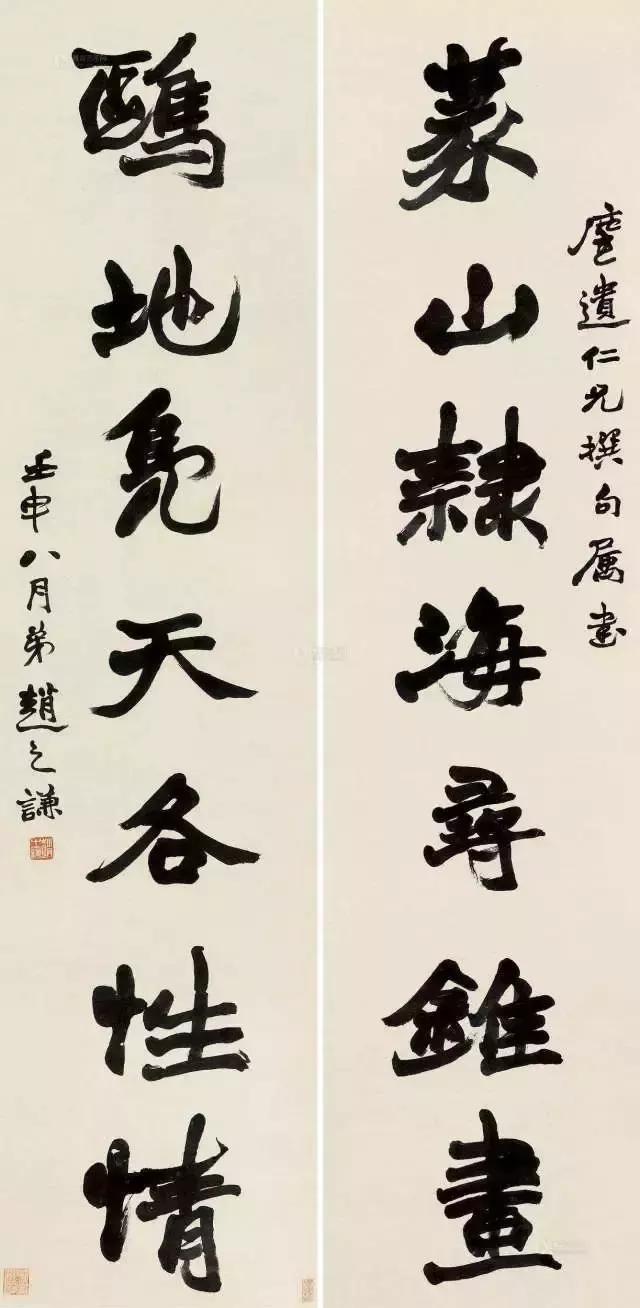 遺仁兄撰句属書
篆山隸海尋錐畫
鷗地鳧天各性情
壬申八月弟趙之謙